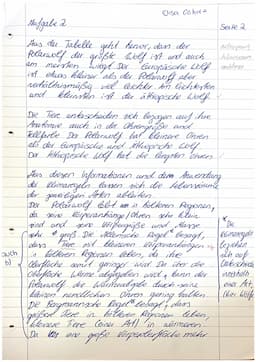 Aufgabe 2
Seite 2
Aus der Tabelle geht hervor, dass der
Polarwolf der größte Wolf ist und auch
am meisten wiegt. Der Europäische Wolf
ist etwas kleiner als der Polarwolf aber
verhältnismäßig viel leichter. Am leichtesten
und kleinsten ist der äthiopische Wolf.
Die Tiere unterscheiden sich bezogen auf ihre
Anatomie auch in der Ohrengröße und
Fellfarbe. Der Polarwolf hat kleinere Ohren
als der Europäische und Äthiopische Wolf.
Der Äthiopische Wolf hat die längsten Ohren.
Aus diesen Informationen und dem Anwendung
der Klimaregeln lassen sich die Lebensräume
der jeweiligen Arten ableiten.
Der Polarwolf lebt in kälteren Regionen,
da seine Körperanhänge/Ohren sehr klein
sind und seine Körpergröße
sehr groß. Die Allensche Regel besagt,
dass Tiere mit kleineren Körperanhängen
in kälteren Regionen leben, da ihre
Oberfläche somit geringer wird. Da über die
Oberfläche Wärme abgegeben wird, kann der
Polarwolf den Wärmeverlust durch seine
kleinen Ohren gering halten.
Die Bergmannsche Regel besagt, dass
größere Tiere in kälteren Regionen leben,
kleinere Tiere (einer Art) in wärmeren.
Da eine große Körperoberfläche mehr
auch
* Die
Klimaregeln
beziehen
sich auf
innerhalb
einer Art,
hier Wölfe